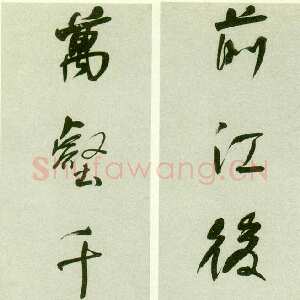 前江後
萬壑千
Shufawang.CN